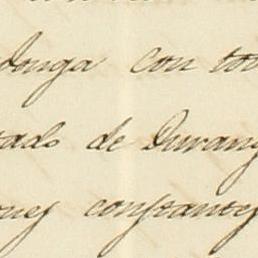 donga con to
tado de Durang
ones constantes